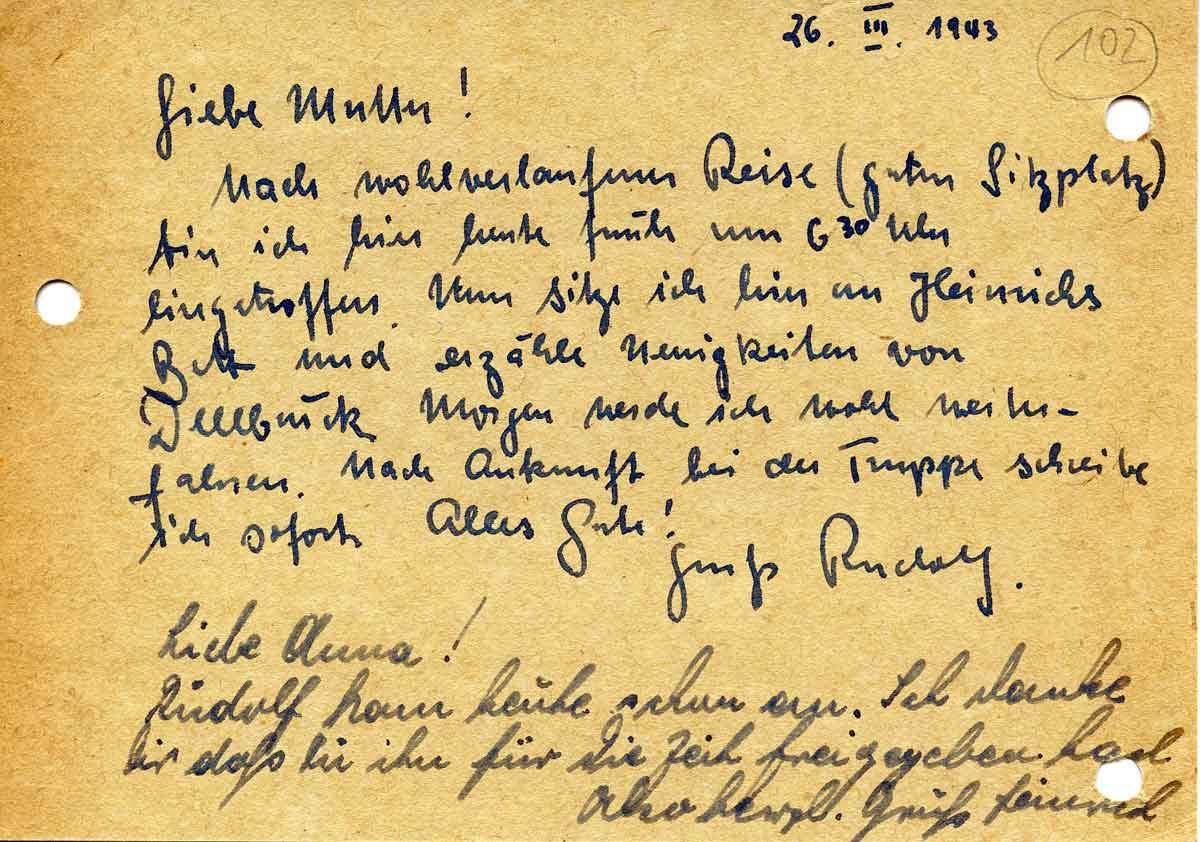 26. III. 1943
102
Liebe Mutter!
Nach wohlverlaufener Reise (guten Sitzplatz)
bin ich hier heute früh um 6 30 Uhr
eingetroffen. Nun sitze ich hier an Heinrichs
Bett und erzähle Neuigkeiten von
Dellbrück. Morgen werde ich wohl weiter-
fahren. Nach Ankunft bei der Truppe schreibe
ich sofort. Alles Gute!
Gruß Rudolf.
Liebe Anna!
Rudolf kam heute schon an. Ich danke
dir daß du ihn für die Zeit freigegeben hast
Also Gruß Heinrich